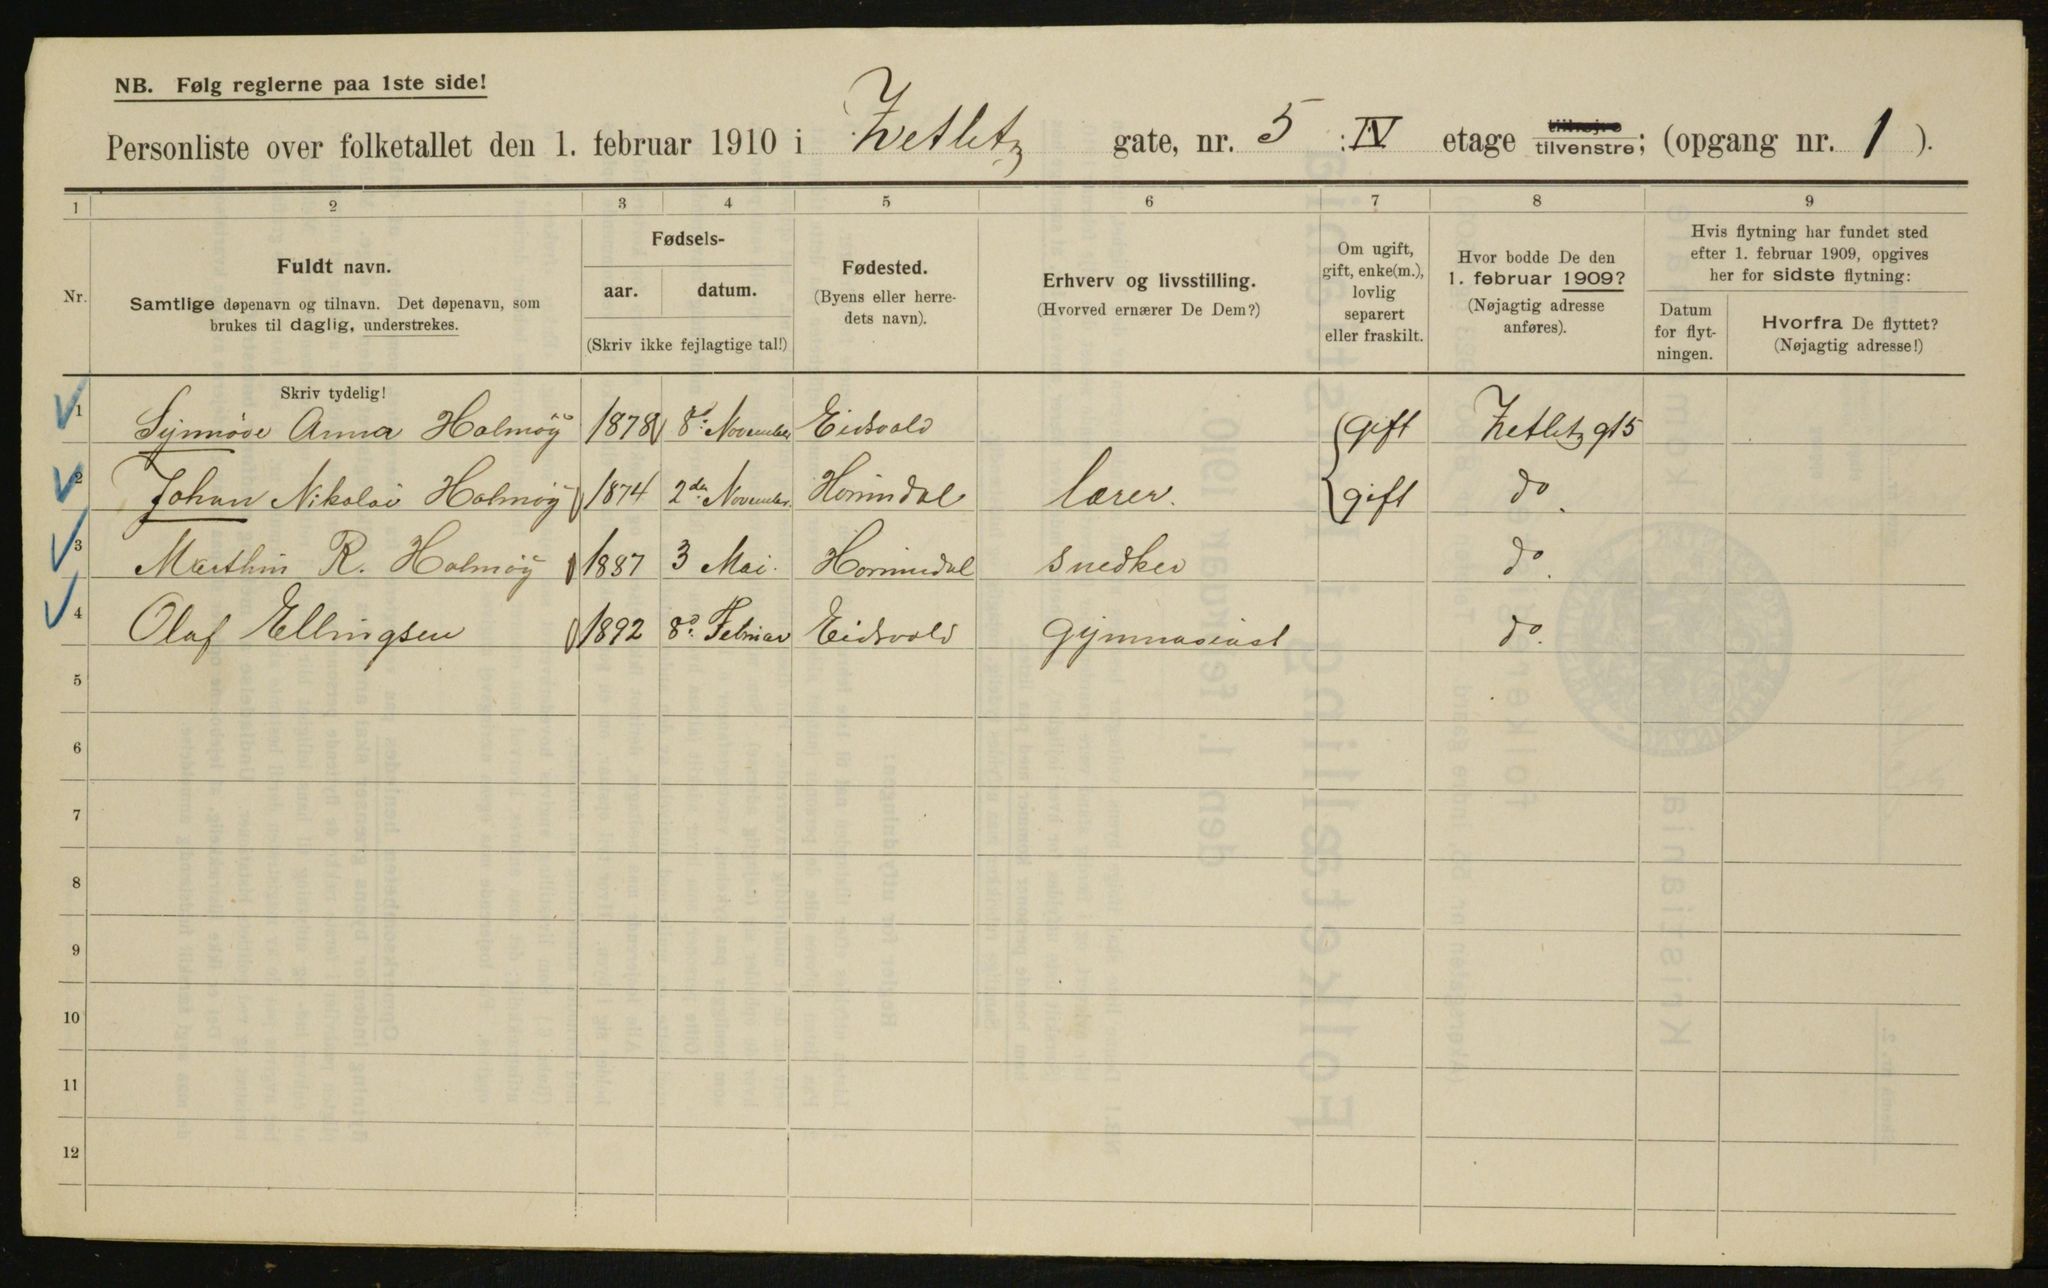 NB. Følg reglerne paa 1ste side!
Personliste over folketallet den 1. februar 1910 i Zetlitz gate, nr. 5 : IV etage tilhøjre tilvenstre; (opgang nr. 1).
1 2 3 4 5 6 7 8 9
Nr.
Fuldt navn.
Samtlige døpenavn og tilnavn. Det døpenavn, som
brukes til daglig, understrekes.
Fødsels-
aar. datum.
(Skriv ikke fejlagtige tal!)
Fødested.
(Byens eller herre-
dets navn).
Erhverv og livsstilling.
(Hvorved ernærer De Dem?)
Om ugift,
gift, enke(m.),
lovlig
separert
eller fraskilt.
Hvor bodde De den
1. februar 1909?
(Nøjagtig adresse
anføres).
Hvis flytning har fundet sted
efter 1. februar 1909, opgives
her for sidste flytning:
Datum
for flyt-
ningen.
Hvorfra De flyttet?
(Nøjagtig adresse!)
Skriv tydelig!
1 Synnøve Anna Holmøy 1878 8d. November Eidsvold gift Zetletz gt 5
2 Johan Nikolai Holmøy 1874 2den November. Hornindal lærer. gift do.
3 Marthin R. Holmøy 1887 3 Mai. Hornindal snedker do.
4 Olaf Ellingsen 1892 8d. Februar Eidsvold gymnasiast do.
5
6
7
8
9
10
11
12